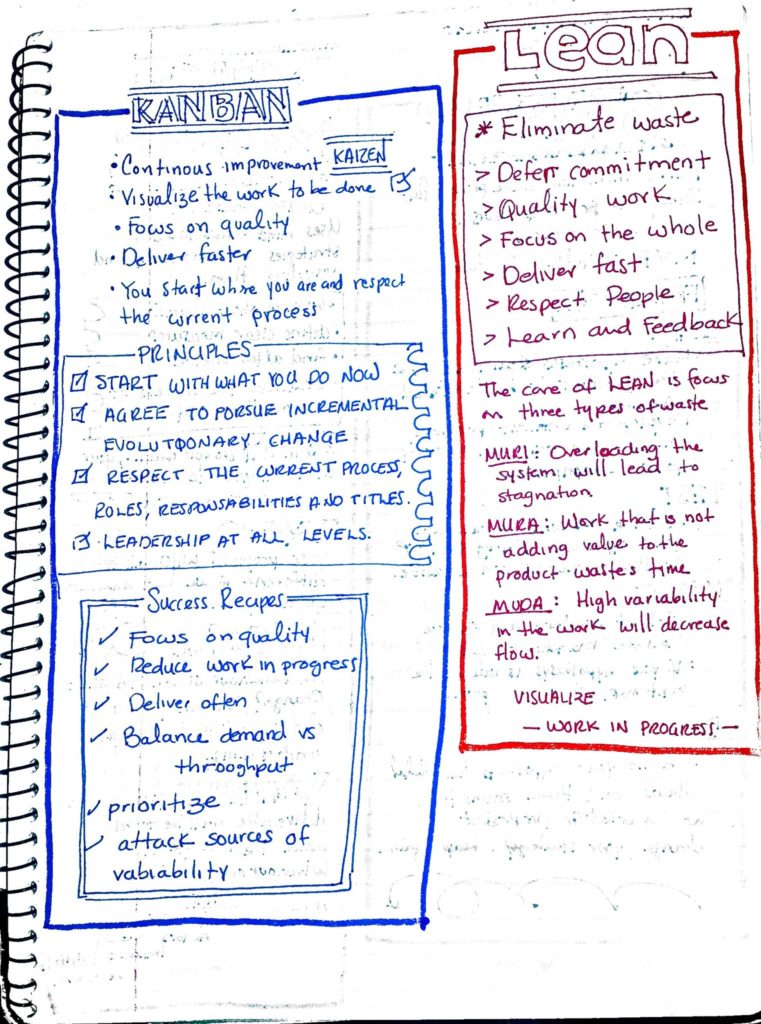 KANBAN
• Continous improvement KAIZEN
• Visualize the work to be done
• Focus on quality
• Deliver faster
• You start whre you are and respect
the current process
PRINCIPLES
START WITH WHAT YOU DO NOW
AGREE TO PORSUE INCREMENTAL
EVOLUTIONARY CHANGE
RESPECT THE CURRENT PROCESS,
ROLES, RESPONSABILITIES AND TITLES.
LEADERSHIP AT ALL LEVELS.
Success Recipes
✓ Focus on quality
✓ Reduce work in progress
✓ Deliver often
✓ Balance demand vs
throoghput
✓ prioritize
✓ attack sources of
vabiability
Lean
* Eliminate waste
> Deferr commitment
> Quality work
> Focus on the whole
> Deliver fast
> Respect People
> Learn and Feedback
The core of LEAN is focus
on three types of waste
MURI: Overloading the
system will lead to
stagnation
MURA: Work that is not
adding value to the
product wastes time
MUDA: High variability
in the work will decrease
flow.
VISUALIZE
— WORK IN PROGRESS. —